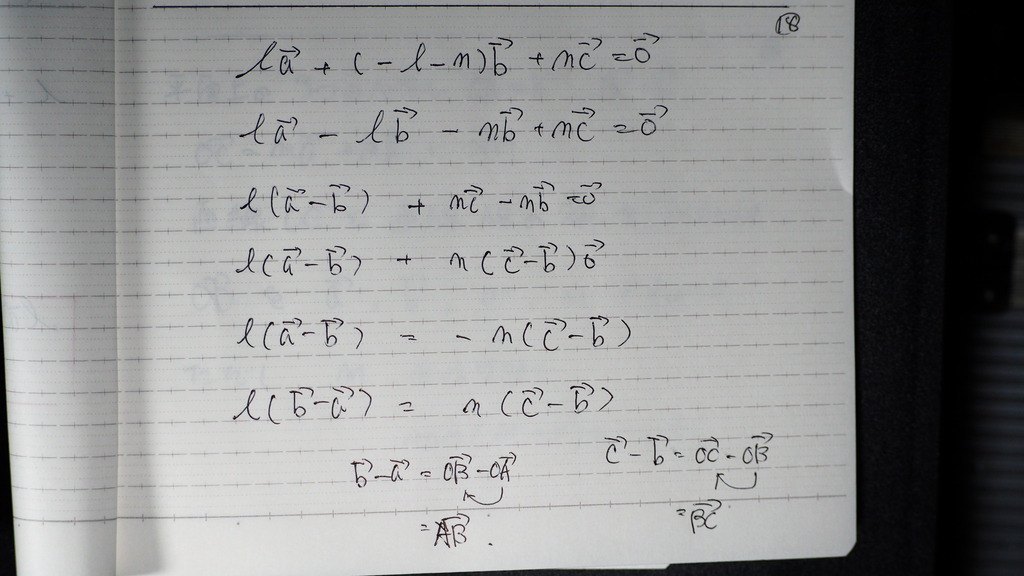 ⑱
l a⃗ + (-l-n) b⃗ + n c⃗ = 0⃗
l a⃗ - l b⃗ - n b⃗ + n c⃗ = 0⃗
l(a⃗-b⃗) + n c⃗ - n b⃗ = 0⃗
l(a⃗-b⃗) + n(c⃗-b⃗) 0⃗
l(a⃗-b⃗) = - n(c⃗-b⃗)
l(b⃗-a⃗) = n(c⃗-b⃗)
b⃗-a⃗ = OB⃗-OA⃗
= AB⃗.
c⃗-b⃗ = OC⃗-OB⃗
= BC⃗